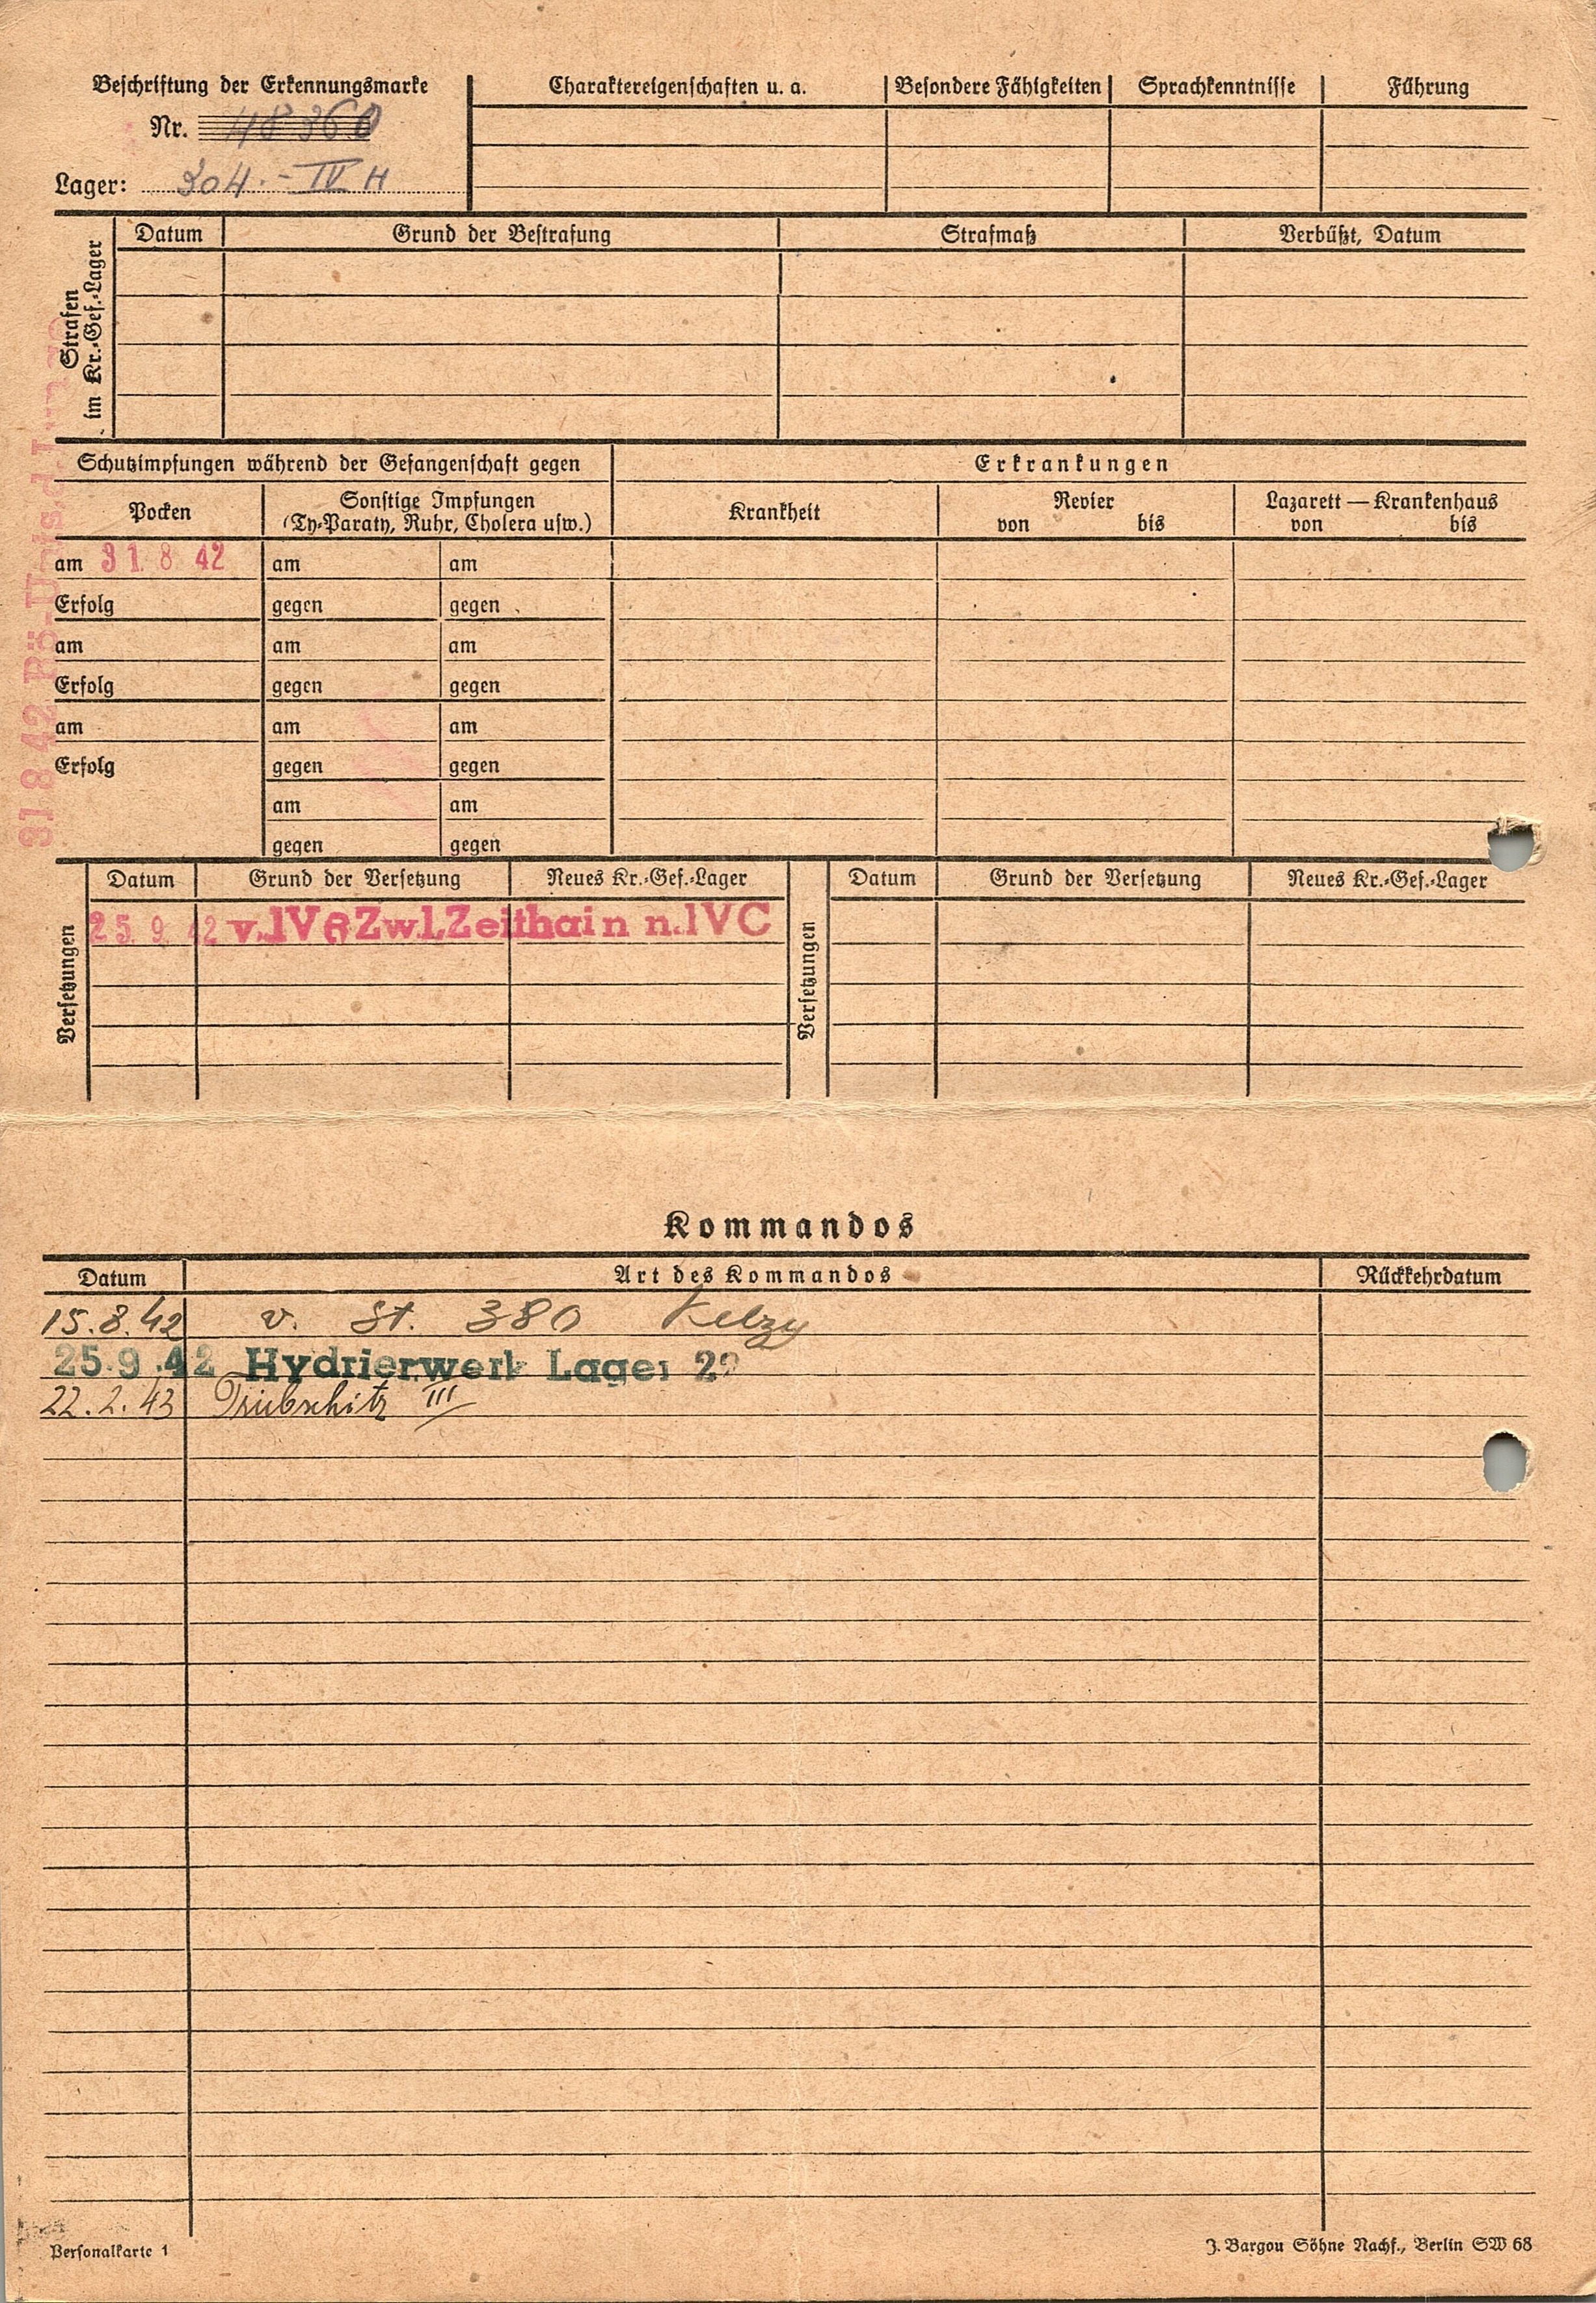 Beschriftung der Erkennungsmarke
Nr. 48360
Lager: 304. - IV H
Charaktereigenschaften u. a.
Besondere Fähigkeiten
Sprachkenntnisse
Führung
Strafen im Kr.-Gef.-Lager
Datum
Grund der Bestrafung
Strafmaß
Verbüßt, Datum
Schutzimpfungen während der Gefangenschaft gegen
Erkrankungen
Pocken
Sonstige Impfungen
(Ty-Paraty, Ruhr, Cholera usw.)
Krankheit
Revier
von bis
Lazarett — Krankenhaus
von bis
am 31. 8 42 am am
Erfolg gegen gegen
am am am
Erfolg gegen gegen
am am am
Erfolg gegen gegen
am am
gegen gegen
31 8 42 Rö-
Versetzungen
Datum Grund der Versetzung Neues Kr.-Gef.-Lager
25. 9. 42 v. IV Zwl. Zeithain n. IVC
Versetzungen
Datum Grund der Versetzung Neues Kr.-Gef.-Lager
Kommandos
Datum Art des Kommandos Rückkehrdatum
15.8.42 v. St. 380
25.9.42 Hydrierwerk Lager
22.2.43 Triebschitz III
Personalkarte 1
J. Bargou Söhne Nachf., Berlin SW 68